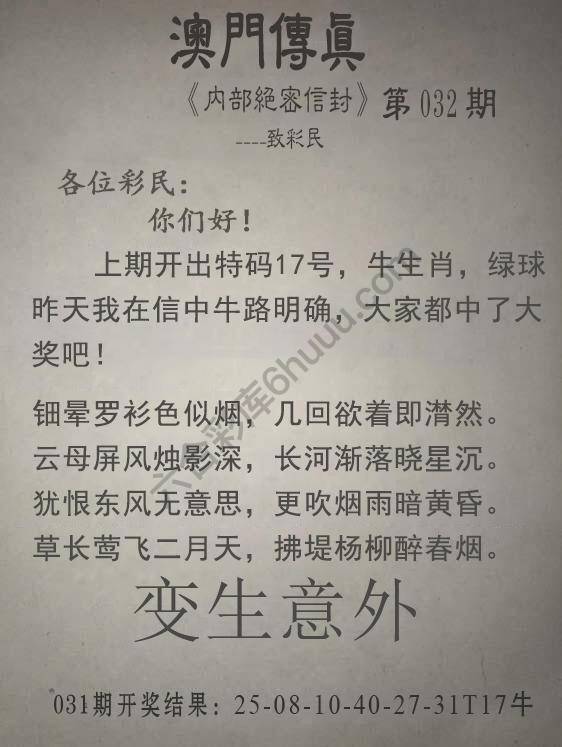 澳門傳真
《内部絕密信封》第032期
----致彩民
各位彩民：
你们好！
上期开出特码17号，牛生肖，绿球
昨天我在信中牛路明确，大家都中了大
奖吧！
钿晕罗衫色似烟，几回欲着即潸然。
云母屏风烛影深，长河渐落晓星沉。
犹恨东风无意思，更吹烟雨暗黄昏。
草长莺飞二月天，拂堤杨柳醉春烟。
变生意外
031期开奖结果：25-08-10-40-27-31T17牛
六合彩库6huuu.com